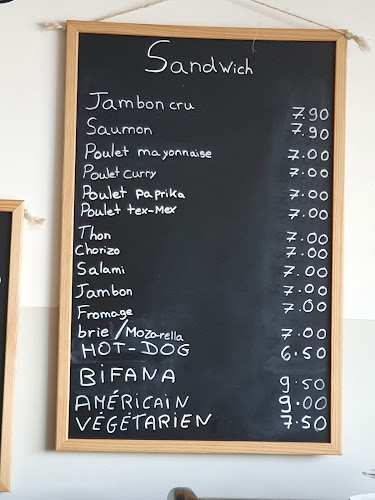 Sandwich
Jambon cru 7.90
Saumon 7.90
Poulet mayonnaise 7.00
Poulet curry 7.00
Poulet paprika 7.00
Poulet tex-Mex 7.00
Thon 7.00
Chorizo 7.00
Salami 7.00
Jambon 7.00
Fromage 7.00
brie/Mozarella 7.00
HOT-DOG 6.50
BIFANA 9.50
AMÉRICAIN 9.00
VÉGÉTARIEN 7.50